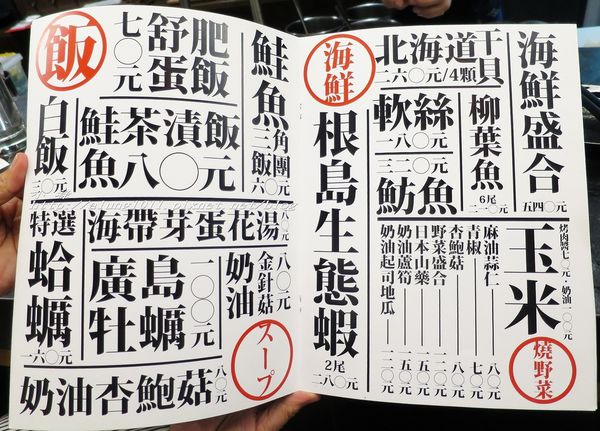 飯
舒肥蛋飯
七〇元
鮭魚三角飯團
六〇元
白飯
三〇元
鮭魚茶漬飯八〇元
特選
蛤蠣
一六〇元
海帶芽蛋花湯
八〇元
廣島牡蠣
〇〇元
奶油金針菇
八〇元
スープ
奶油杏鮑菇
八〇元
海鮮
北海道干貝
二六〇元/4顆
海鮮盛合
五四〇元
根島生態蝦
2尾
二八〇元
軟絲
一八〇元
三二〇元
魴魚
柳葉魚
6尾
二一〇元
玉米
烤肉醬七〇元・奶油一〇〇元
燒野菜
麻油蒜仁 八〇元
青椒 七〇元
杏鮑菇 八〇元
野菜盛合 二五〇元
日本山藥 一五〇元
奶油蘆筍 一五〇元
奶油起司地瓜 一二〇元